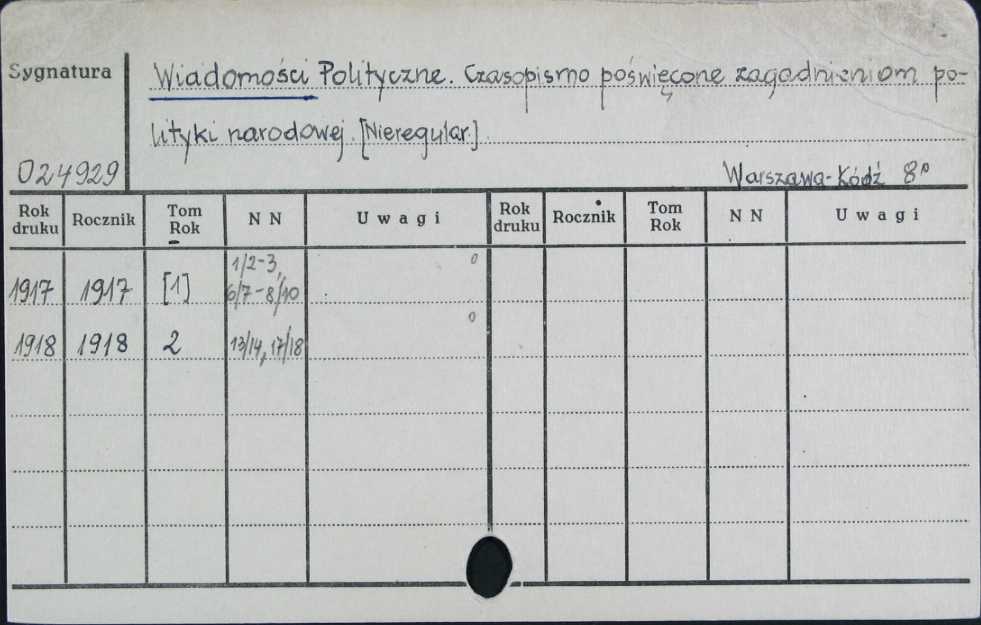 Sygnatura
Wiadomości Polityczne. Czasopismo poświęcone zagadnieniom po-
lityki narodowej. [Nieregular.]
024929
Warszawa-Łódź 8°
Rok druku Rocznik Tom Rok N N Uwagi Rok druku Rocznik Tom Rok N N Uwagi
1917 1917 [1] 1/2-3, 6/7-8/10 0
1918 1918 2 13/14, 17/18 0